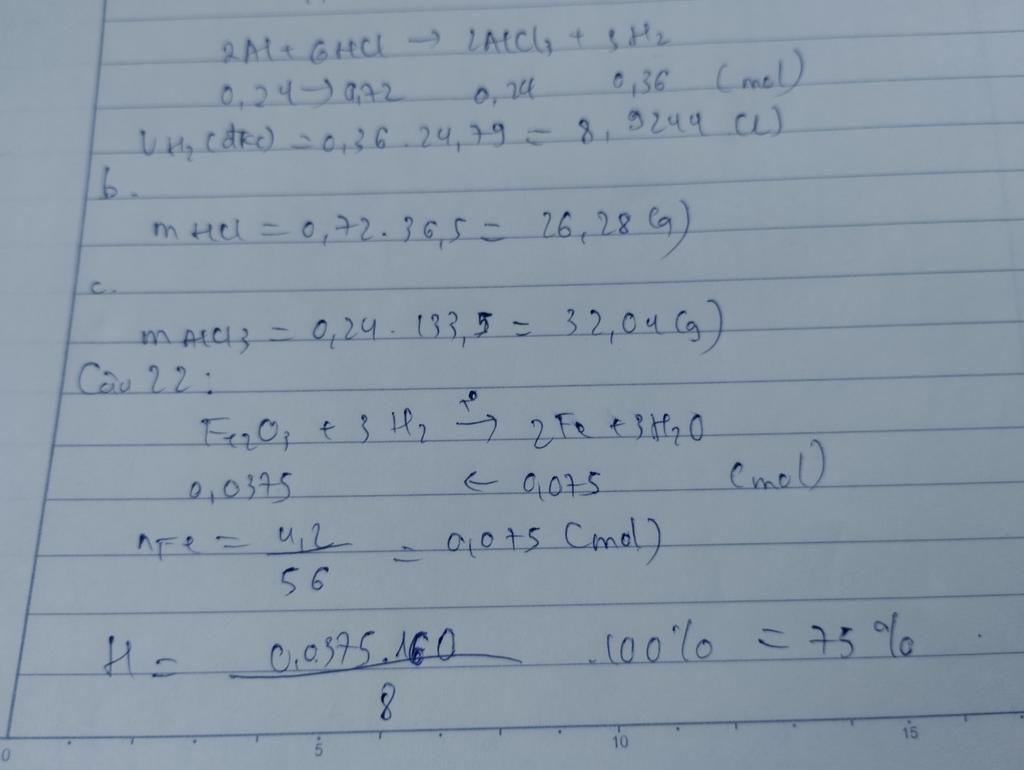 2Al + 6HCl → 2AlCl3 + 3H2
0,24 → 0,72 0,24 0,36 (mol)
VH2 (đkc) = 0,36 . 24,79 = 8,9244 (l)
b.
mHCl = 0,72 . 36,5 = 26,28 (g)
c.
mAlCl3 = 0,24 . 133,5 = 32,04 (g)
Câu 22 :
Fe2O3 + 3H2 t° → 2Fe + 3H2O
0,0375 ← 0,075 (mol)
nFe = 4,2 / 56 = 0,075 (mol)
H = 0,0375.160 / 8 .100% = 75%
0 5 10 15